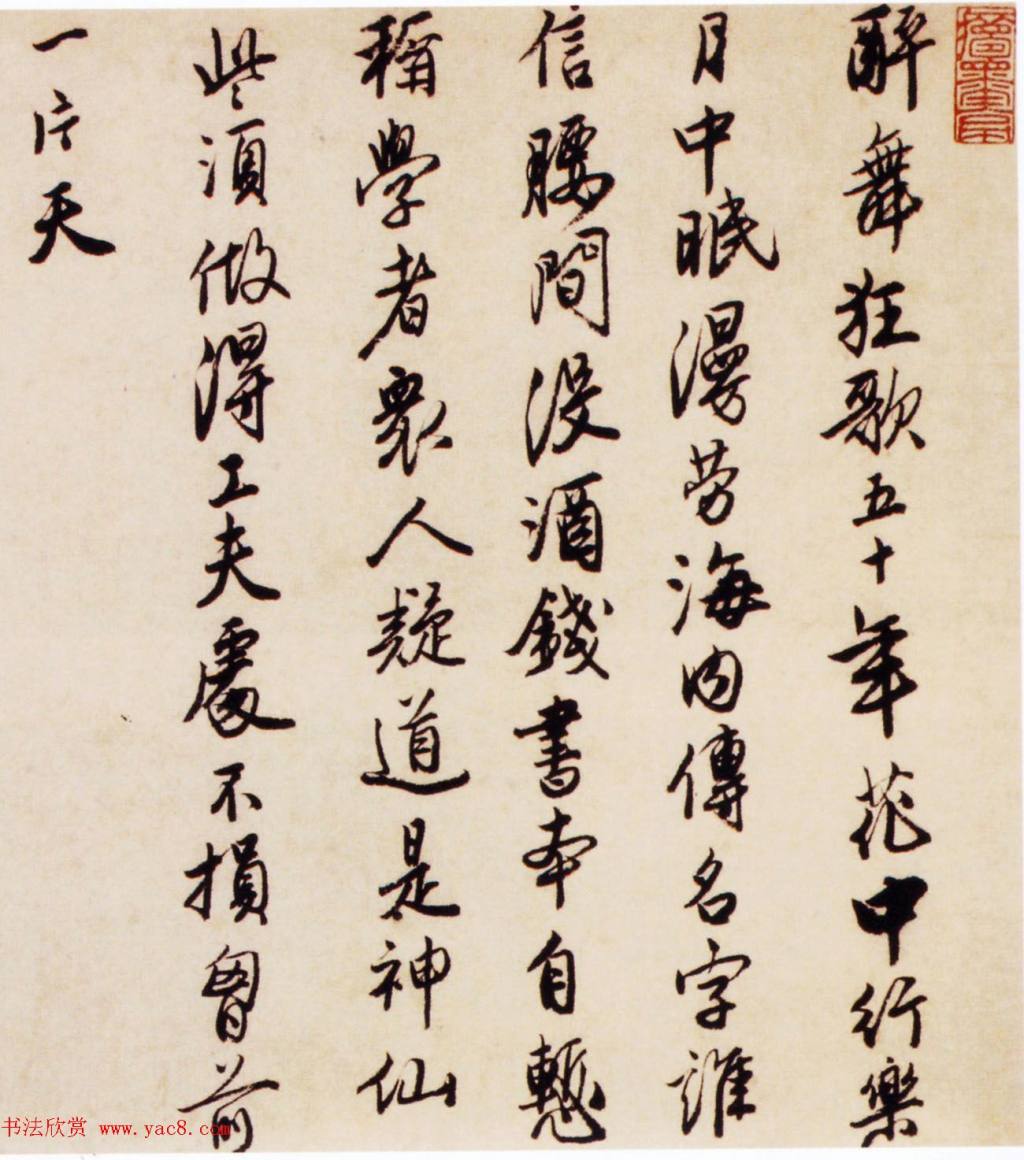 醉舞狂歌五十年花中行樂
月中眠漫勞海內傳名字誰
信腰間沒酒錢書本自慙
稱學者眾人疑道是神仙
些須做得工夫處不損胷前
一片天
书法欣赏 www.yac8.com